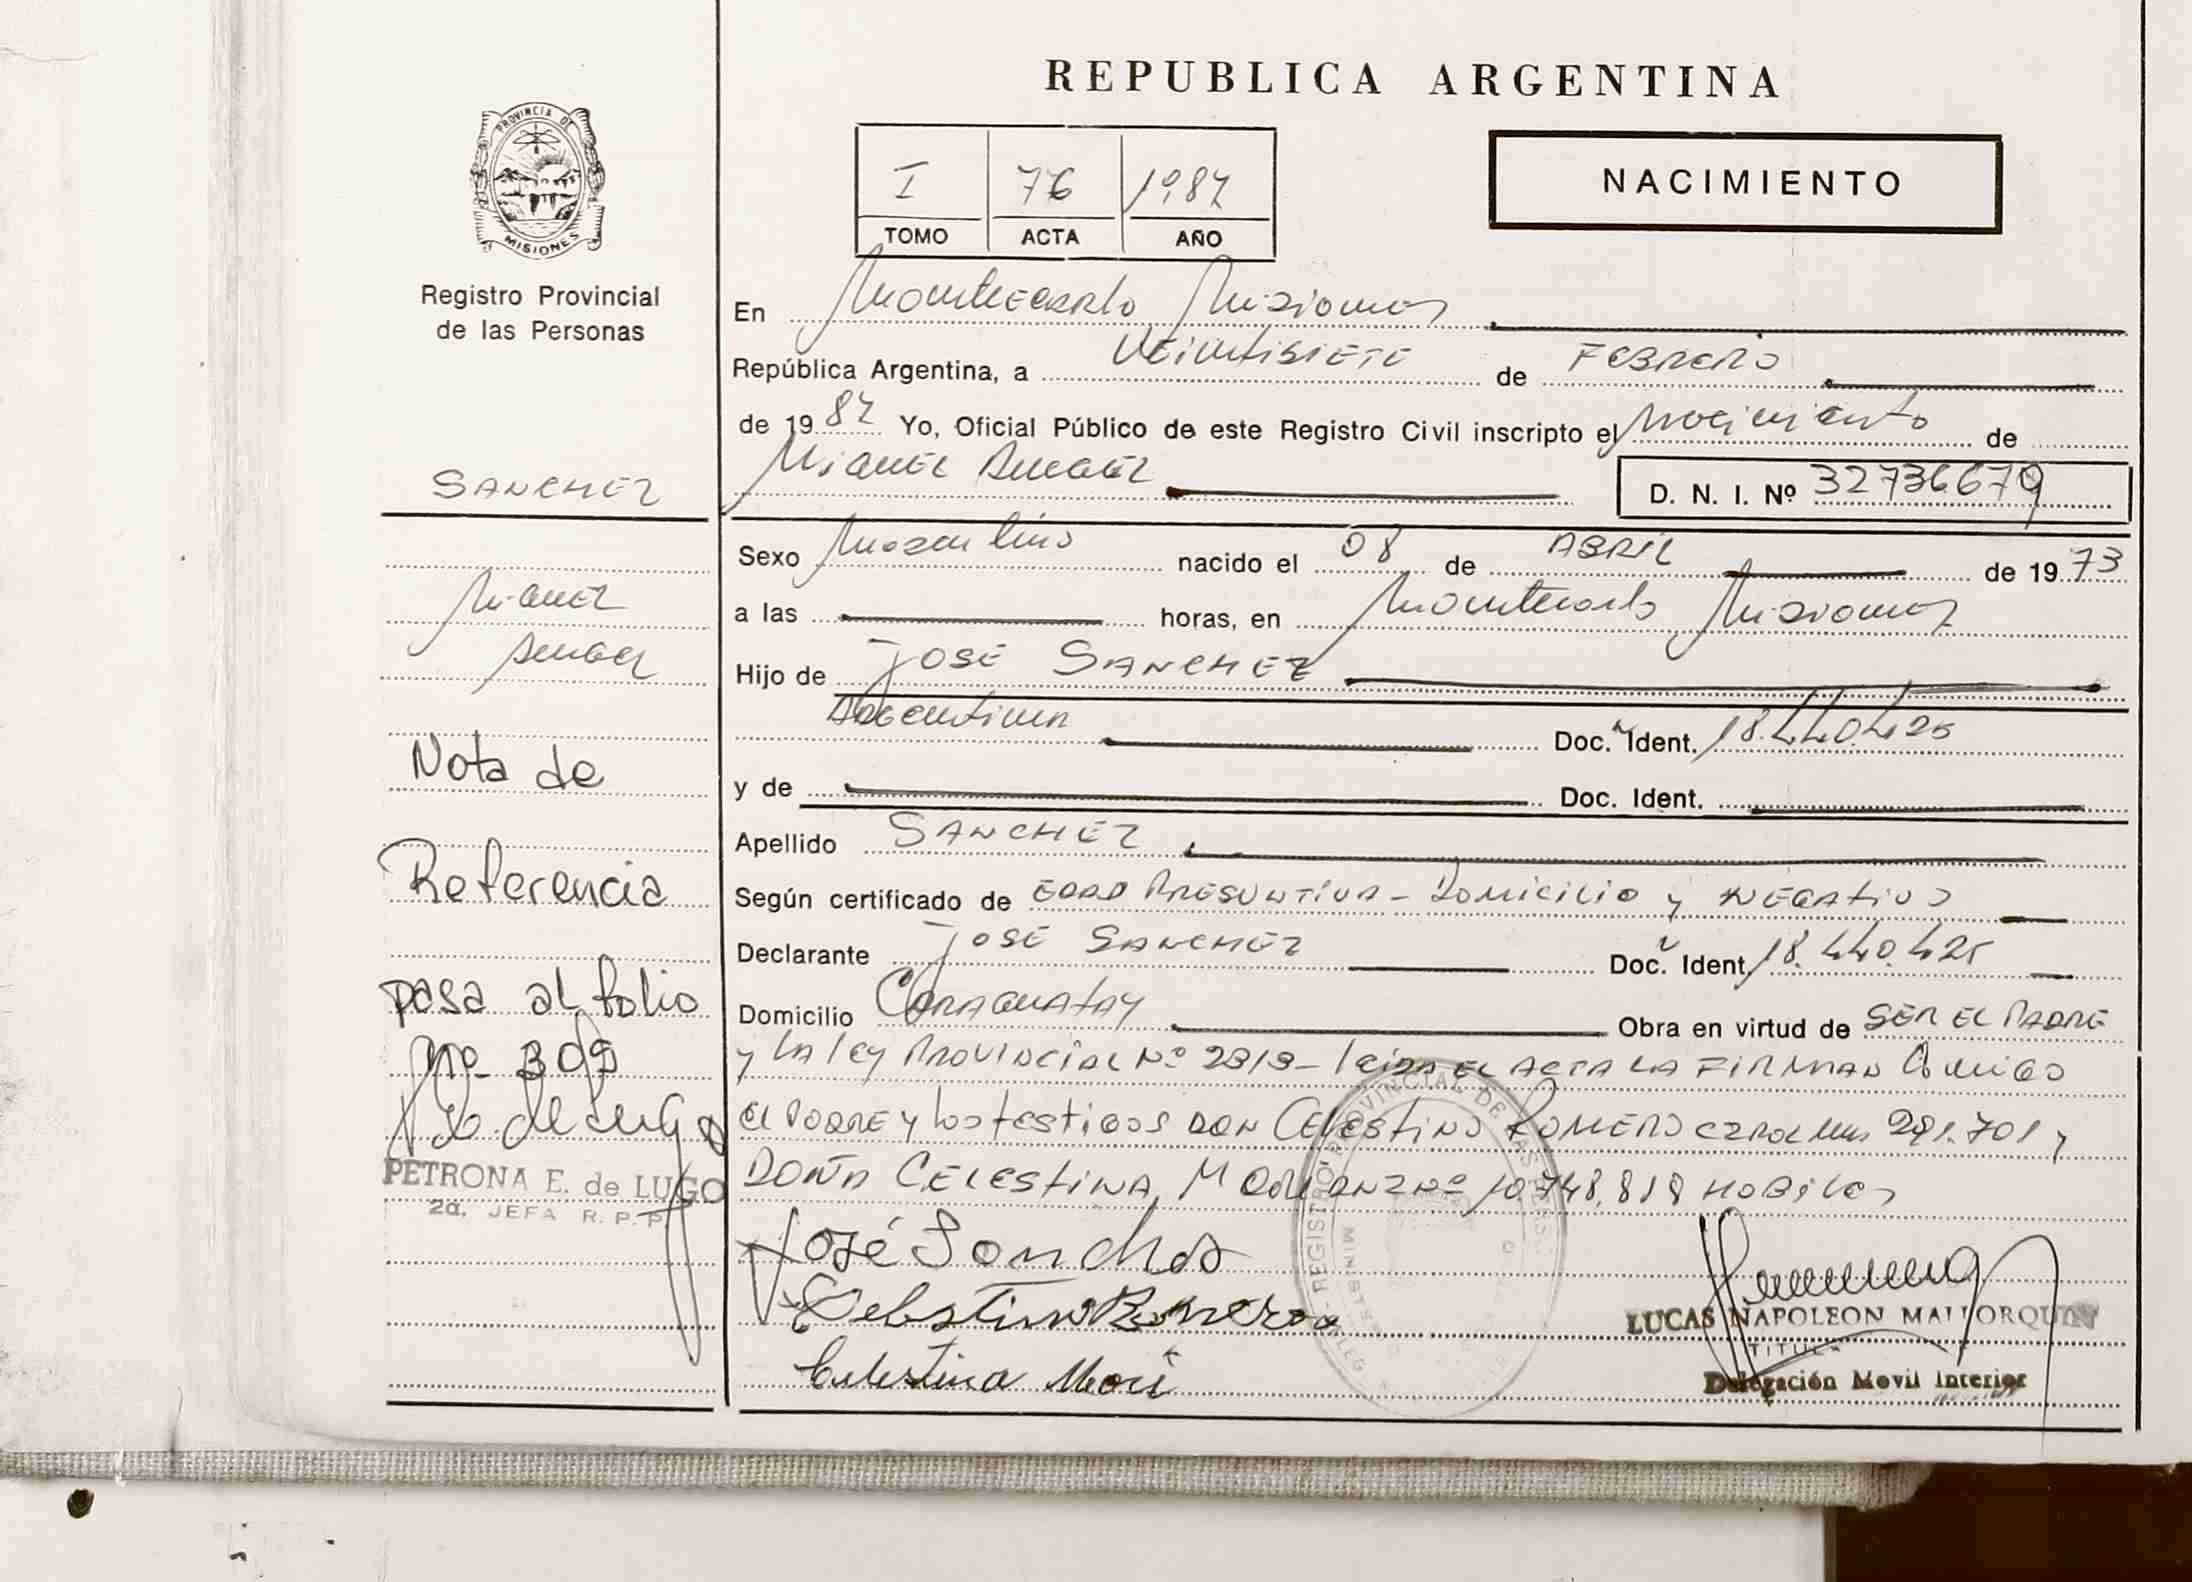 REPUBLICA ARGENTINA
PROVINCIA DE
MISIONES
Registro Provincial
de las Personas
I 76 1987
TOMO ACTA AÑO
NACIMIENTO
En Montecarlo Misiones
República Argentina, a Veintisiete de FEBRERO
de 1987 Yo, Oficial Público de este Registro Civil inscripto el Nacimiento de
MIGUEL ANGEL
D. N. I. Nº 32736679
SANCHEZ
Miguel
Angel
Sexo Masculino nacido el 08 de ABRIL de 1973
a las horas, en Montecarlo Misiones
Hijo de JOSE SANCHEZ
Argentina Doc. Ident. 18.440.425
y de Doc. Ident.
Apellido SANCHEZ
Según certificado de EDAD PRESUNTIVA - DOMICILIO y NEGATIVO
Declarante JOSE SANCHEZ Doc. Ident. 18.440.425
Domicilio CARAGUATAY Obra en virtud de SER EL PADRE
y LA ley PROVINCIAL Nº 2319 - leida EL ACTA LA FIRMAN Conmigo
el PADRE y los testigos DON CELESTINO ROMERO 291.701 y
DOÑA CELESTINA Nº 10.748.819 HABILES
Nota de
Referencia
pasa al folio
Nº 309
PETRONA E. de LUGO
2a. JEFA R. P. P.
José Sanches
Celestino Romero
Celestina
REGISTRO PROVINCIAL DE LAS PERS.
LUCAS NAPOLEON MALLORQUIN
TITULAR
Delegación Movil Interior